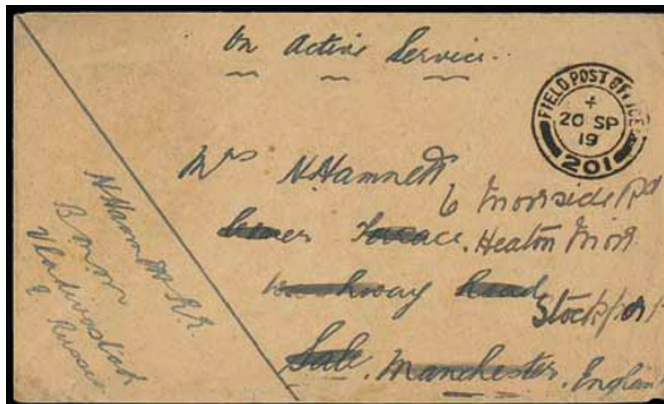 On Active Service.
FIELD POST OFFICE
20 SP
19
201
Mrs N. Hamnett
6 Moorside Rd
Terrace. Heaton Moor
Road
Stockport
Sale. Manchester. England
N Hamnett
Vladivostock
Russia